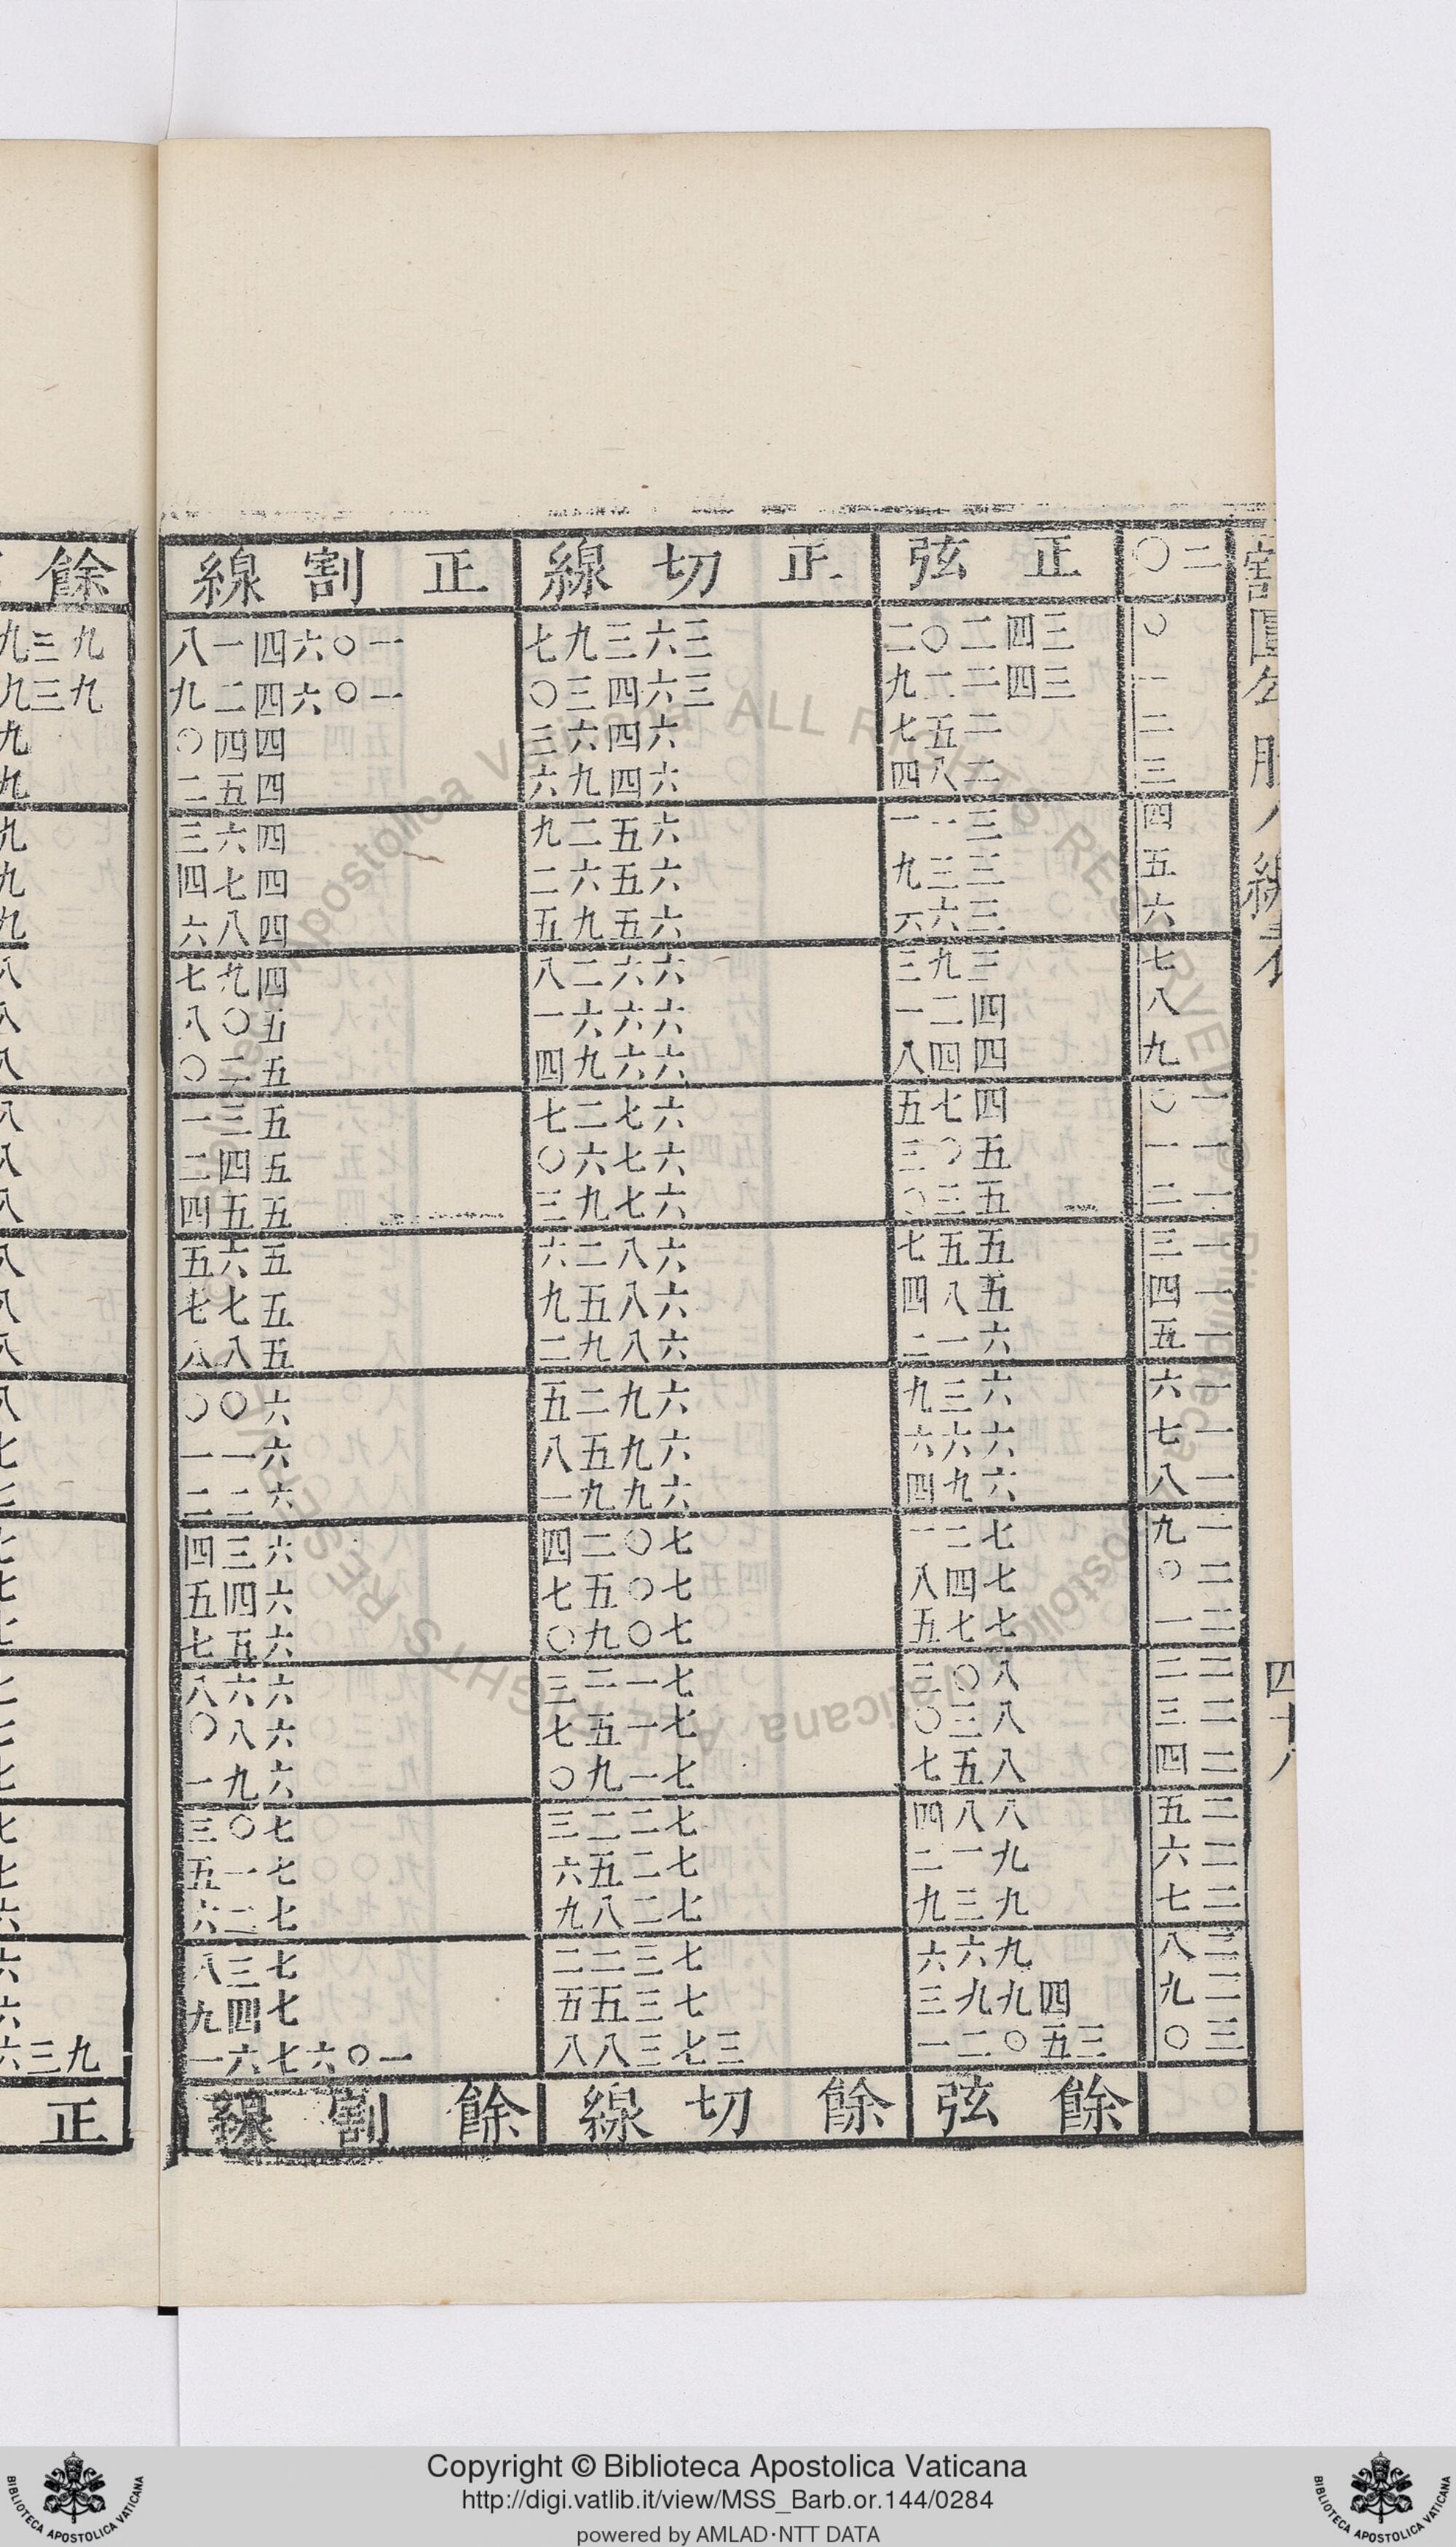 割圓勾股八線表
四十八
二〇 正弦 正切線 正割線 餘
〇 三四二〇二 三六三九七 一〇六四一八 九三九
一 三四二二九 三六四三〇 一〇六四二九 九三九
二 二五七 六四六三 四四〇 九
三 二八四 六四九六 四五二 九
四 三一一 六五二九 四六三 九
五 三三九 六五六二 四七四 九
六 三六六 六五九五 四八六 九
七 三九三 六六二八 四九七 八
八 四二一 六六六一 五〇八 八
九 四四八 六六九四 五二〇 八
一〇 四七五 六七二七 五三一 八
一一 五〇三 六七六〇 五四二 八
一二 五三〇 六七九三 五五四 八
一三 五五七 六八二六 五六五 八
一四 五八四 六八五九 五七七 八
一五 六一二 六八九二 五八八 八
一六 六三九 六九二五 六〇〇 八
一七 六六六 六九五八 六一一 七
一八 六九四 六九九一 六二二 七
一九 七二一 七〇二四 六三四 七
二〇 七四八 七〇五七 六四五 七
二一 七七五 七〇九〇 六五七 七
二二 八〇三 七一二三 六六八 七
二三 八三〇 七一五七 六八〇 七
二四 八五七 七一九〇 六九一 七
二五 八八四 七二二三 七〇三 七
二六 九一二 七二五六 七一五 七
二七 九三九 七二八九 七二六 六
二八 九六六 七三二二 七三八 六
二九 四九九三 七三五五 七四九 六
三〇 三五〇二一 三七三八八 一〇六七六一 九三六
餘弦 餘切線 餘割線 正
Copyright © Biblioteca Apostolica Vaticana
http://digi.vatlib.it/view/MSS_Barb.or.144/0284
powered by AMLAD·NTT DATA
BIBLIOTECA APOSTOLICA VATICANA
BIBLIOTECA APOSTOLICA VATICANA